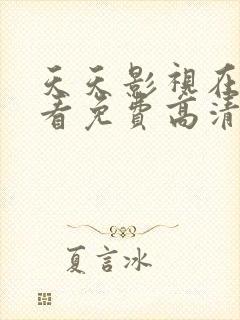 天天影視在
看免費高清
夏言冰